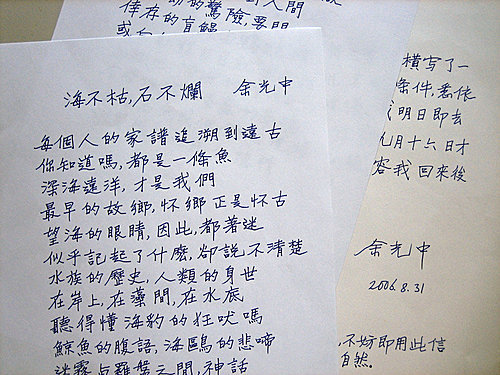 海不枯,石不爛 余光中
每個人的家譜追溯到遠古
你知道嗎,都是一條魚
深海遠洋,才是我們
最早的故鄉,怀鄉正是怀古
望海的眼睛,因此,都著迷
似乎記起了什麼,卻說不清楚
水族的歷史,人類的身世
在岸上,在藻間,在水底
聽得懂海豹的狂吠嗎
鯨魚的腹語,海鷗的悲啼
迷霧與羅盤之間,神話
的驚險,要問
倖存的
人間
橫写了一
条件,悉依
明日即去
九月十六日才
容我回來後
余光中
2006.8.31
不妨即用此信
自然。